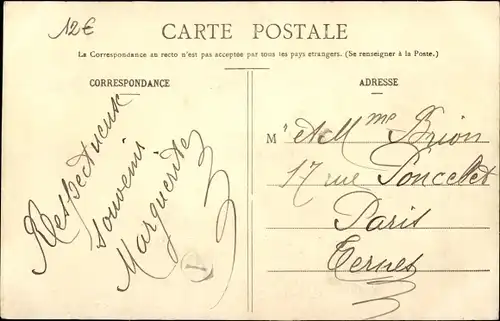 12€
CARTE POSTALE
La Correspondance au recto n'est pas acceptée par tous les pays étrangers. (Se renseigner à la Poste.)
CORRESPONDANCE
Respectueux
souvenir
Marguerite
1
ADRESSE
M' et Mme Brion
17 rue Poncelet
Paris
Ternes